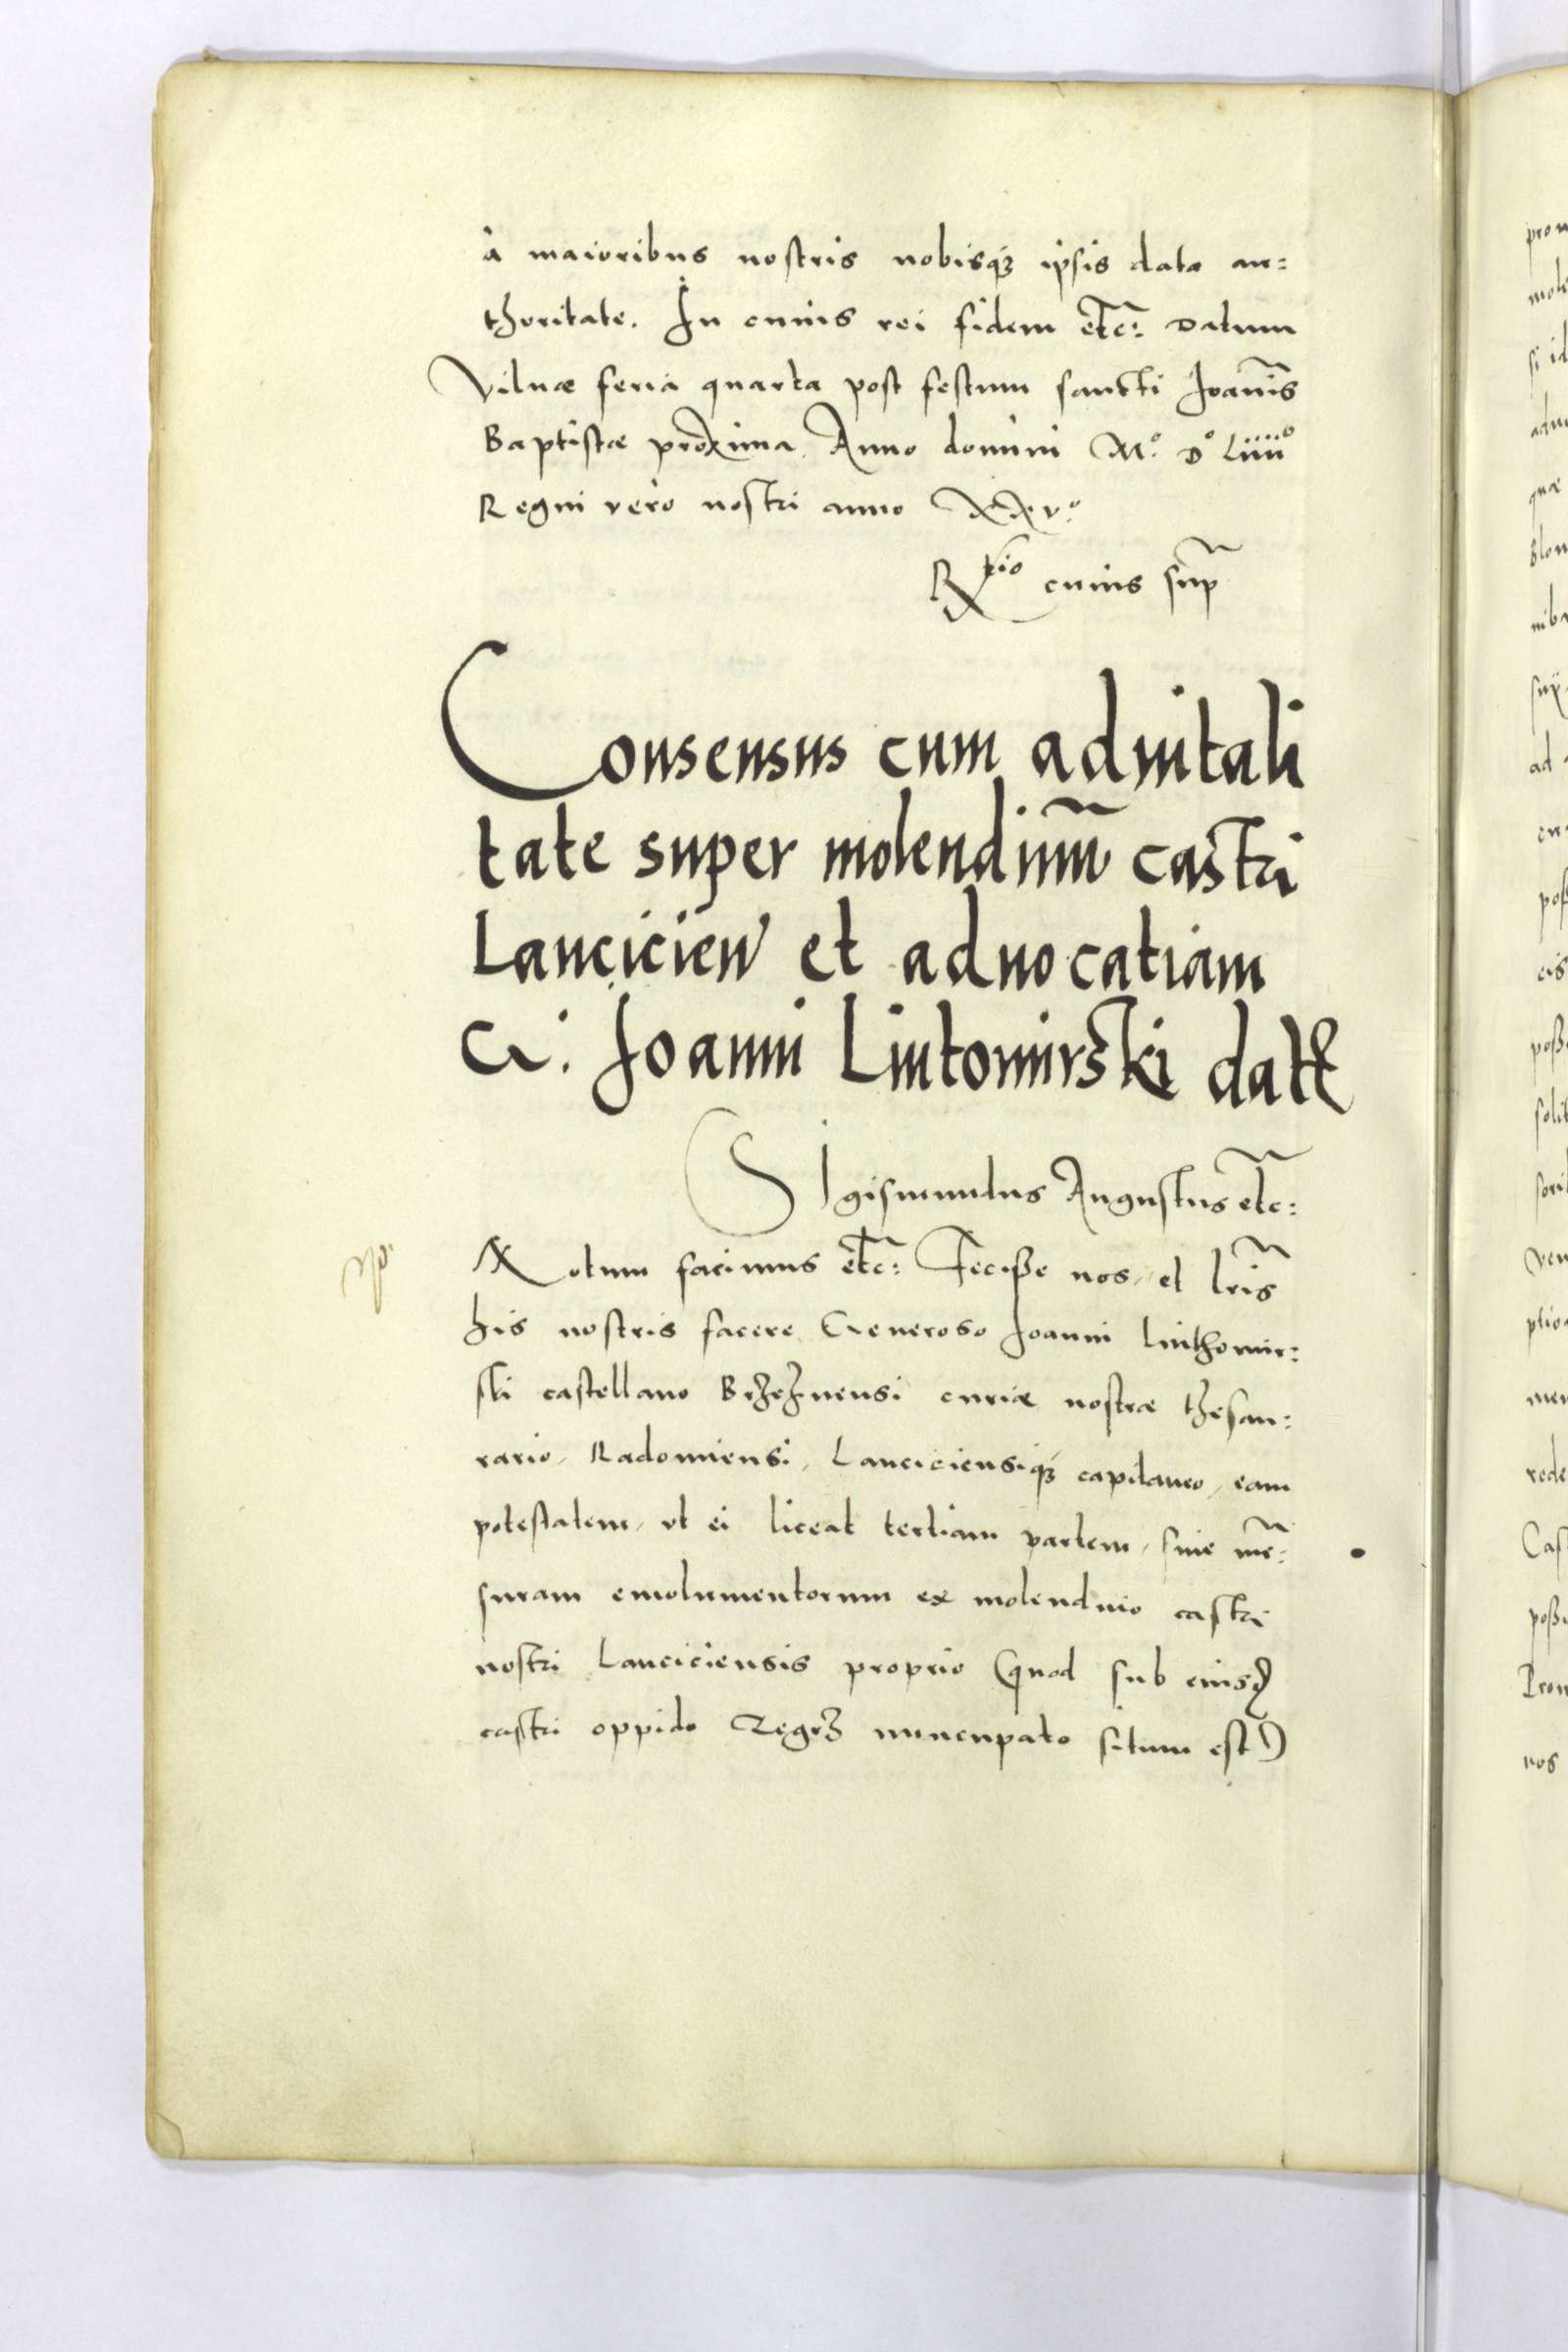 à maioribus nostris nobisq3 ipsis data au=
thoritate. In cuius rei fidem etc: Datum
Vilnæ feria quarta post festum sancti Joānis
Baptistæ proxima Anno domini M.º Dº Liiiiº
Regni vero nostri anno XXv.º
Rtio cuius sup̄
Consensus cum aduitali
tate super molendinū castri
Lanciciēn et aduocatiam
G. Joanni Liutomirski datꝭ
SIgismundus Augustus etc:
Notum facimus etc: Fecisse nos, et lr̄is
his nostris facere Generoso Joanni Liuthomir=
ski castellano Brzeznensi curiæ nostræ thesau=
rario, Radomiensi, Lanciciensiq3 capitaneo, eam
potestatem, vt ei liceat tertiam partem, siue mē=
suram emolumentorum ex molendino castri
nostri Lanciciensis proprio (quod sub eiusd
castri oppido nuncupato situm est)
pron
mole
si id
adu
quæ
Blon
ad
pos
eis
solit
ptio
men
rede
Cas
nos